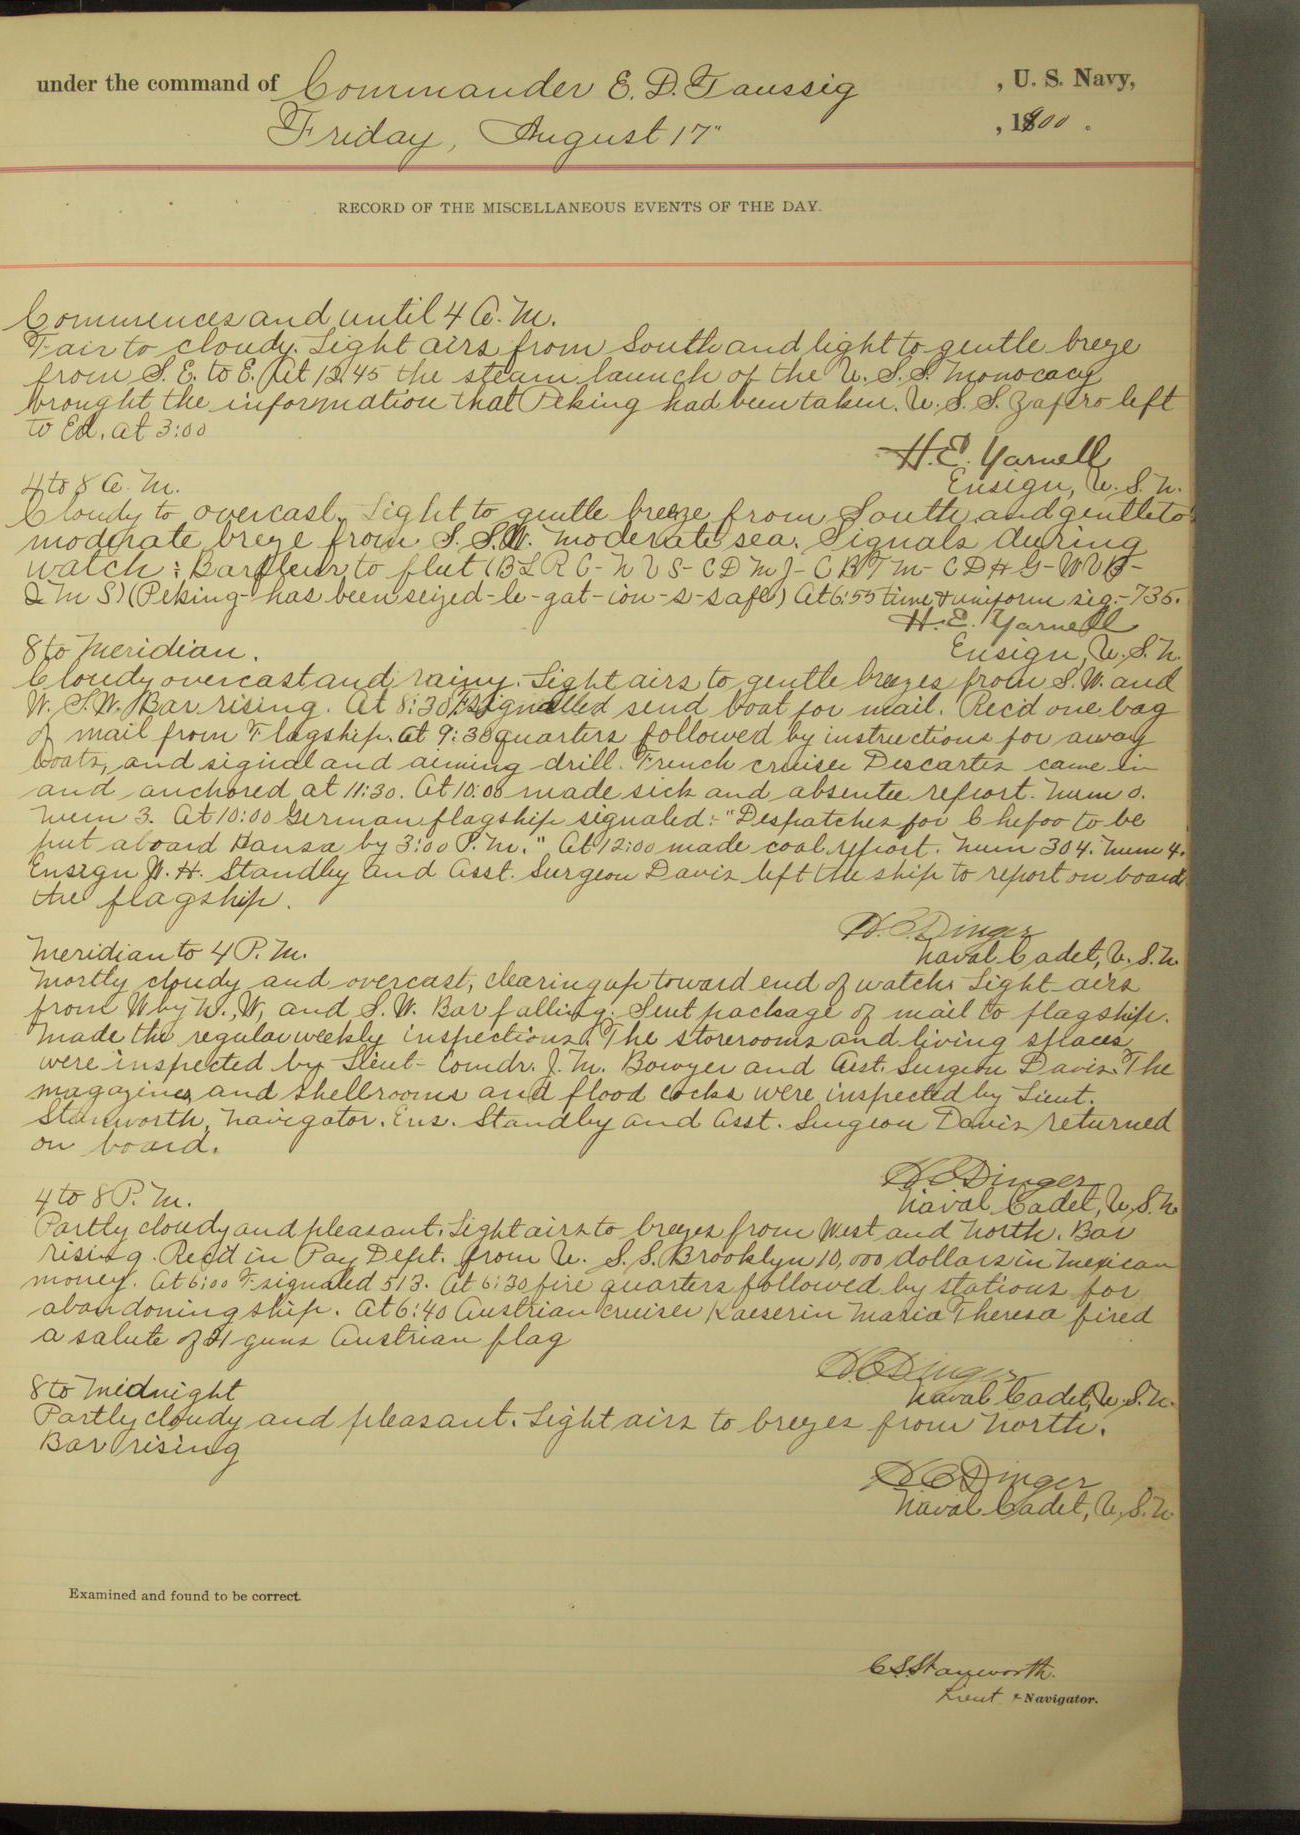 under the command of Commander E. D. Taussig , U. S. Navy,
Friday, August 17" , 1900.
RECORD OF THE MISCELLANEOUS EVENTS OF THE DAY.
Commences and until 4 A. M.
Fair to cloudy. Light airs from South and light to gentle breeze
from S. E. to E. At 12.45 the steam launch of the U. S. S. Monocacy
brought the information that Peking had been taken. U. S. S. Zafiro left
to Ed. at 3:00
H. E. Yarnell
Ensign, U. S. N.
4 to 8 A. M.
Cloudy to overcast. Light to gentle breeze from South and gentle to
moderate breeze from S. S. W. Moderate sea. Signals during
watch: Barfleur to fleet (B L R C - N V S - C D M J - C B T M - C D H G - W V B -
Q M S) (Peking - has been seized - le - gat - ion - s - safe) At 6:55 time & uniform sig. - 735.
H. E. Yarnell
Ensign, U. S. N.
8 to Meridian.
Cloudy overcast and rainy. Light airs to gentle breezes from S. W. and
W. S. W. Bar rising. At 8:30 F signalled send boat for mail. Rec'd one bag
of mail from Flagship. At 9:30 quarters followed by instructions for away
boats, and signal and aiming drill. French cruiser Descartes came in
and anchored at 11:30. At 10:00 made sick and absentee report. Num 0.
Num 3. At 10:00 German flagship signaled:- "Despatches for Chefoo to be
put aboard Hansa by 3:00 P. M." At 12:00 made coal report. Num 304. Num 4.
Ensign W. H. Standley and Asst. Surgeon Davis left the ship to report on board
the flagship.
H. C. Dinger
Naval Cadet, U. S. N.
Meridian to 4 P. M.
Mostly cloudy and overcast, clearing up toward end of watch. Light airs
from W by N., W, and S. W. Bar falling. Sent package of mail to flagship.
Made the regular weekly inspections. The storerooms and living spaces
were inspected by Lieut-Comdr. J. M. Bowyer and Asst. Surgeon Davis. The
magazines and shellrooms and flood cocks were inspected by Lieut.
Stanworth, Navigator. Ens. Standley and Asst. Surgeon Davis returned
on board.
H C Dinger
Naval Cadet, U. S. N.
4 to 8 P. M.
Partly cloudy and pleasant. Light airs to breezes from West and North. Bar
rising. Rec'd in Pay Dept. from U. S. S. Brooklyn 10,000 dollars in Mexican
money. At 6:00 F signaled 513. At 6:30 fire quarters followed by stations for
abandoning ship. At 6:40 Austrian cruiser Kaeserin Maria Theresa fired
a salute of 21 guns Austrian flag
H C Dinger
Naval Cadet, U. S. N.
8 to Midnight
Partly cloudy and pleasant. Light airs to breezes from North.
Bar rising
H C Dinger
Naval Cadet, U. S. N.
Examined and found to be correct.
C S Stanworth.
Lieut & Navigator.